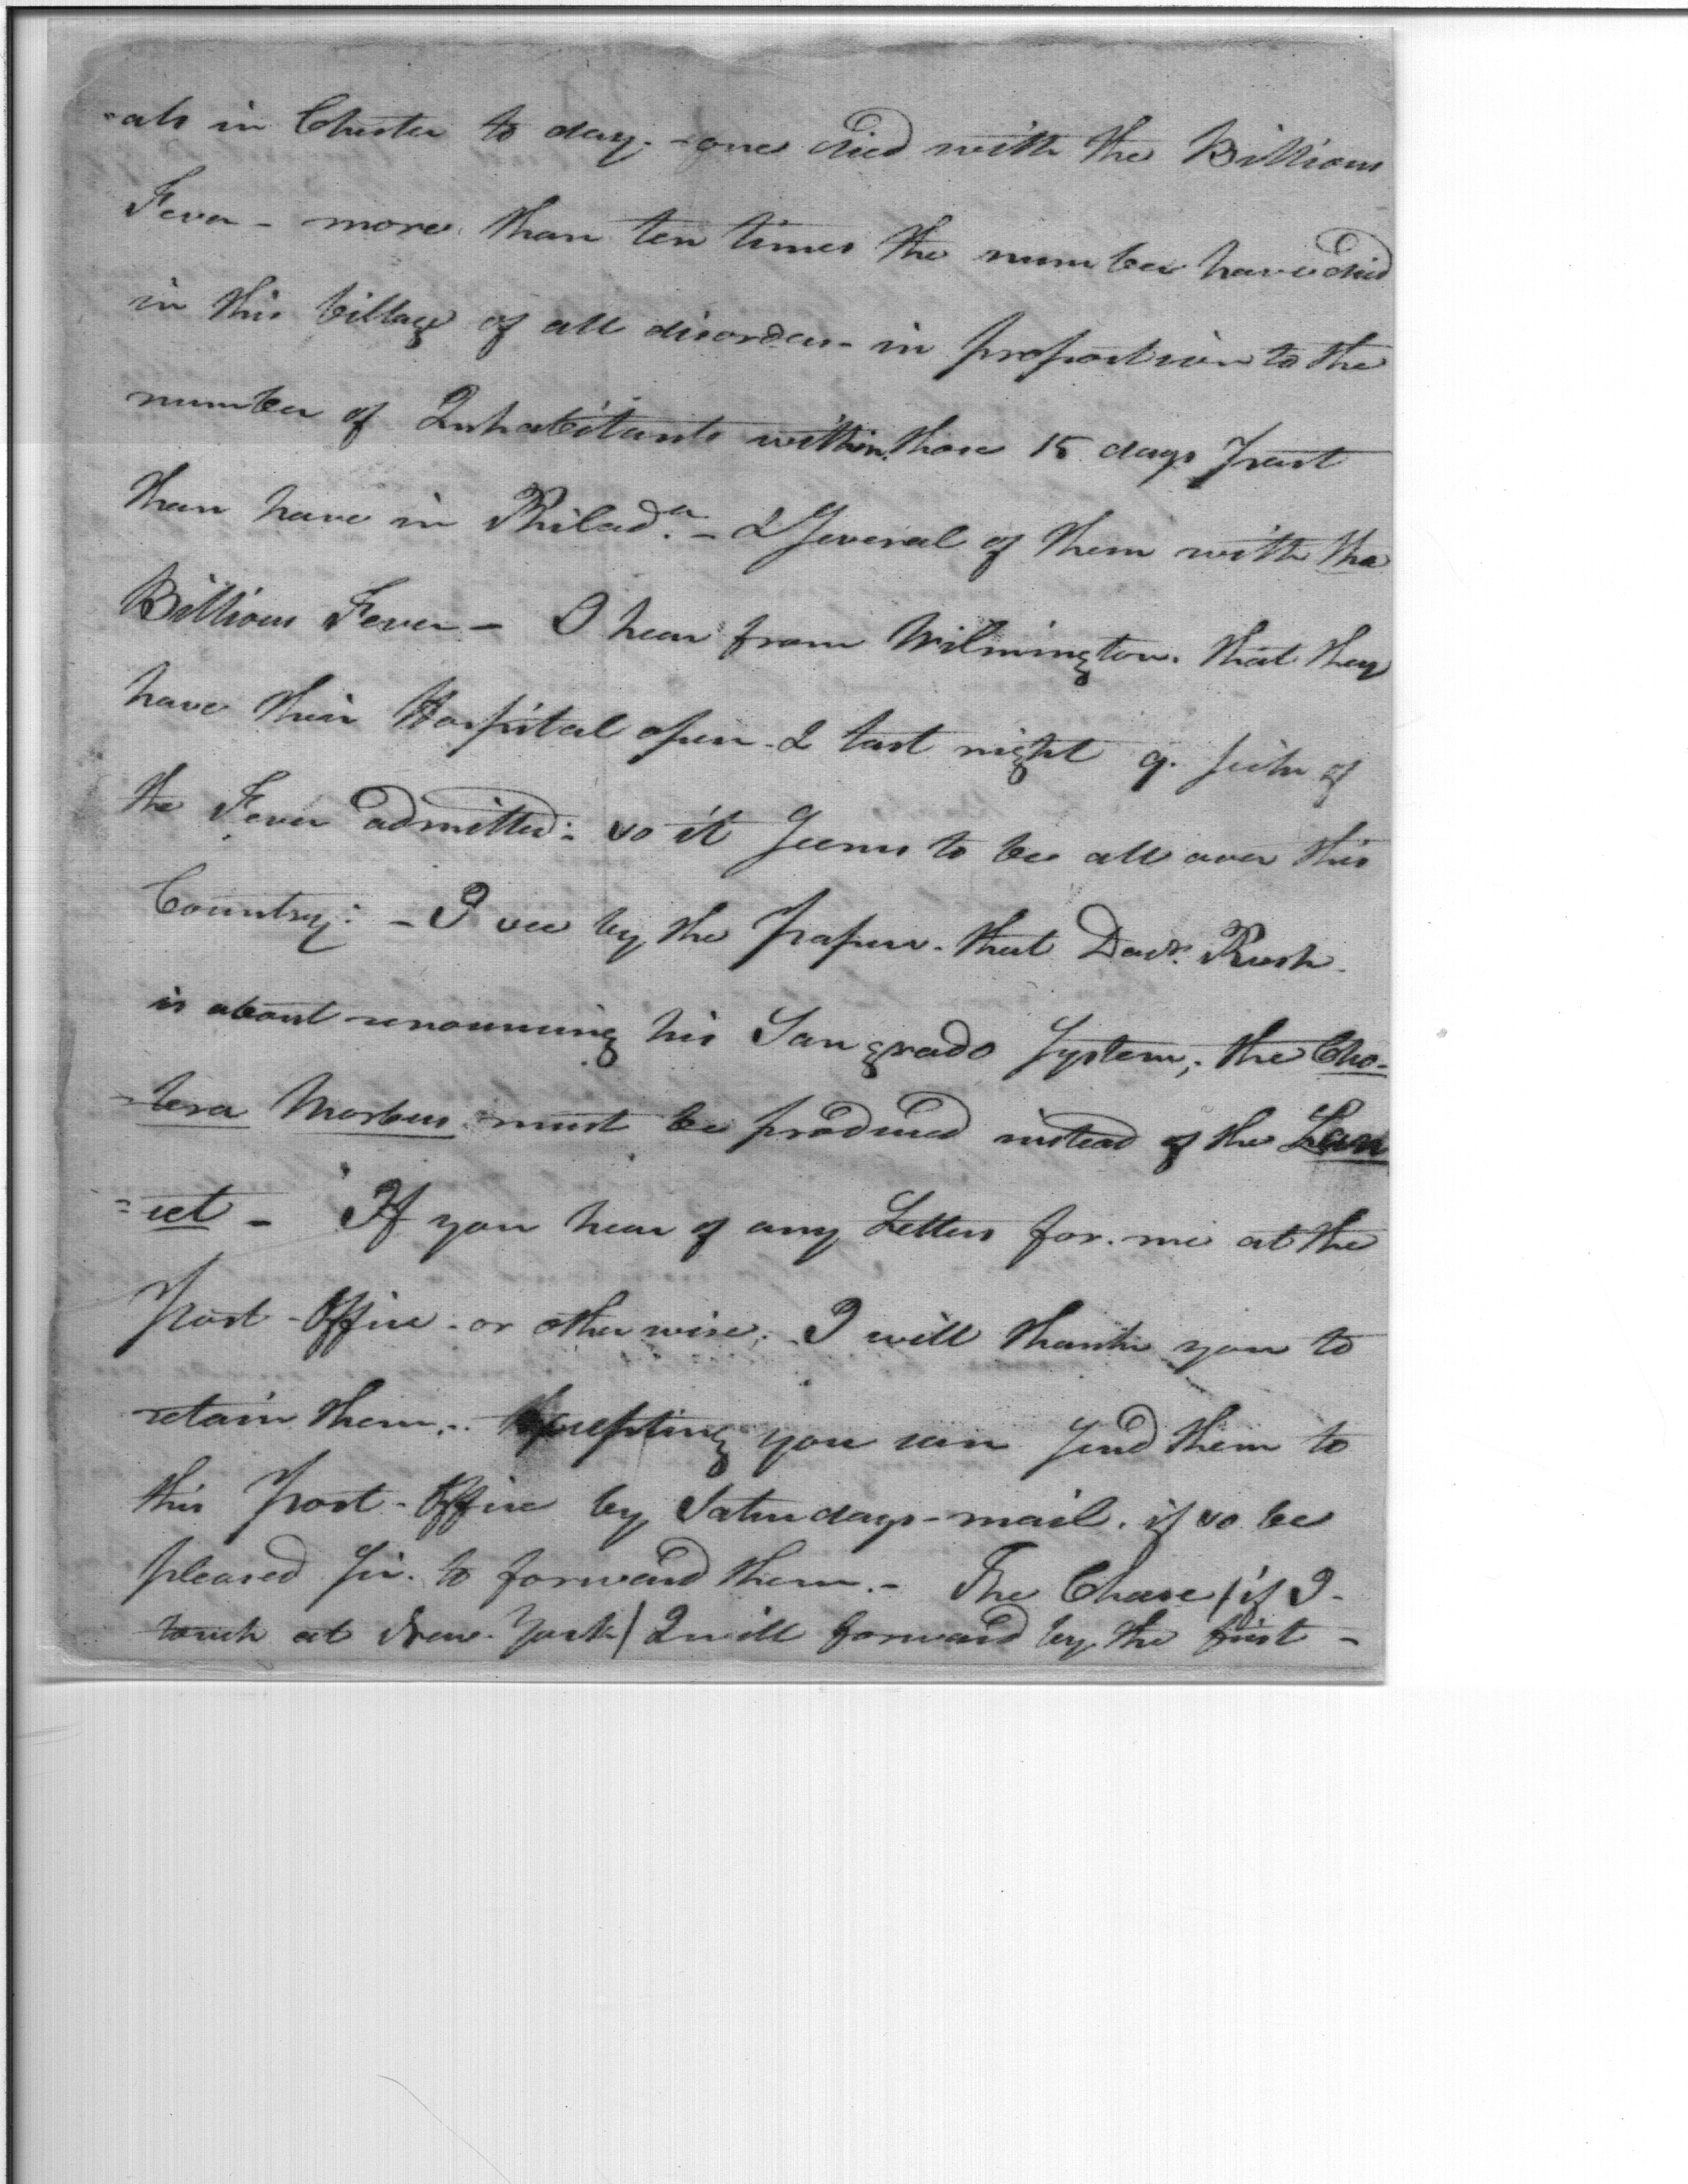 -als in Chester to day. - one died with the Billious
Fever - more than ten times the number have died
in this Village of all disorders - in proportion to the
number of Inhabitants within these 15 days past
than have in Philad.a - & Several of them with the
Billious Fever - I hear from Wilmington. that they
have their Hospital open - & last night 9. sick of
the Fever admitted: so it Seems to be all over this
Country: - I see by the Papers. that Doctr. Rush.
is about renouncing his Sangrado System, the Cho-
-lera Morbus must be produced instead of the Lan
=cet - If you hear of any Letters for. me at the
Post-Office - or otherwise, I will thank you to
retain them. - Excepting you can Send them to
this Post-Office by Saturdays - mail. if so be
pleased Sir. to forward them. - The Chase / if I -
touch at New-York / I will forward by the first -